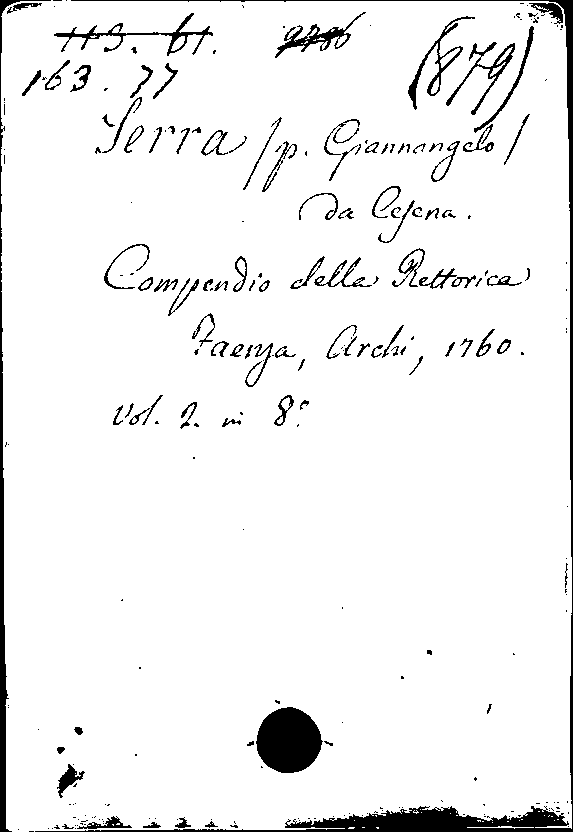 113. 61. 9786 (879)
163. 77
Serra /p. Giannangelo/
da Cesena.
Compendio della Rettorica
Faenza, Archi, 1760.
Vol. 2. in 8º